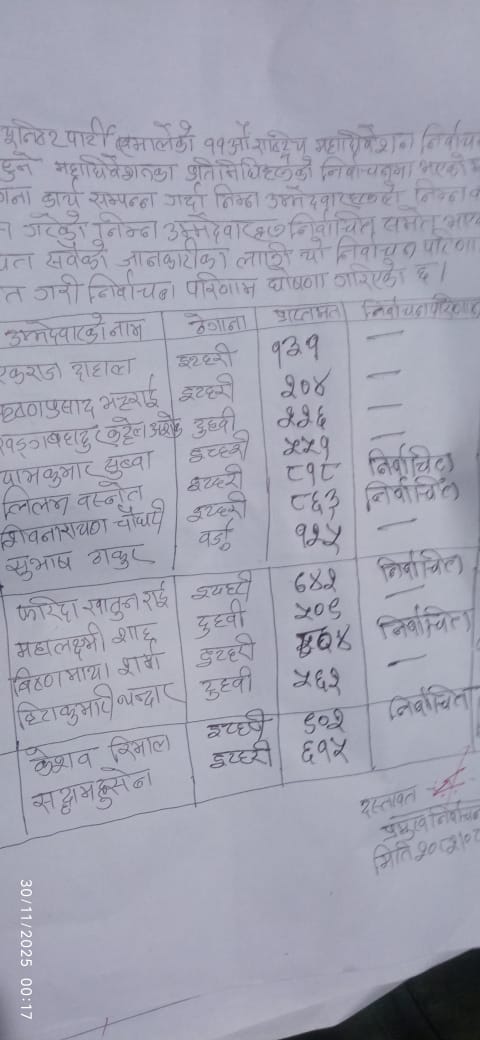 पार्टी एमालेको ११औं राष्ट्रिय महाधिवेशन निर्वाचन
हुने महाधिवेशनका प्रतिनिधिहरुको निर्वाचनमा भएको
गना कार्य सम्पन्न गर्दा निम्न उम्मेदवारहरुले निम्न
निम्न उम्मेदवारहरु निर्वाचित समेत भएको
सर्वको जानकारीका लागी यो निर्वाचन परिणाम
त गरी निर्वाचन परिणाम घोषणा गरिएको छ।
उम्मेदवारको नाम ठेगाना प्राप्तमत निर्वाचन परिणाम
एकराज दाहाल इटहरी १३१ —
प्रसाद भट्टराई इटहरी २०४ —
खड्गबहादुर दुहवी २२६ —
यामकुमार सुब्बा इटहरी ५५१ —
लिलम बस्नेत इटहरी ८१८ निर्वाचित
शिवनारायण चौधरी इटहरी ८६३ निर्वाचित
सुभाष ठाकुर १२५ —
फरिदा खातुन राई इटहरी ६४२ निर्वाचित
महालक्ष्मी शाह दुहवी ५०९ —
शर्मा इटहरी निर्वाचित
दुहवी ५६२ —
केशव रिमाल इटहरी ९०२ निर्वाचित
सद्दाम हुसेन इटहरी ६१५
दस्तखत
प्रमुख निर्वाचन
मिति २०८२।०८
30/11/2025 00:17